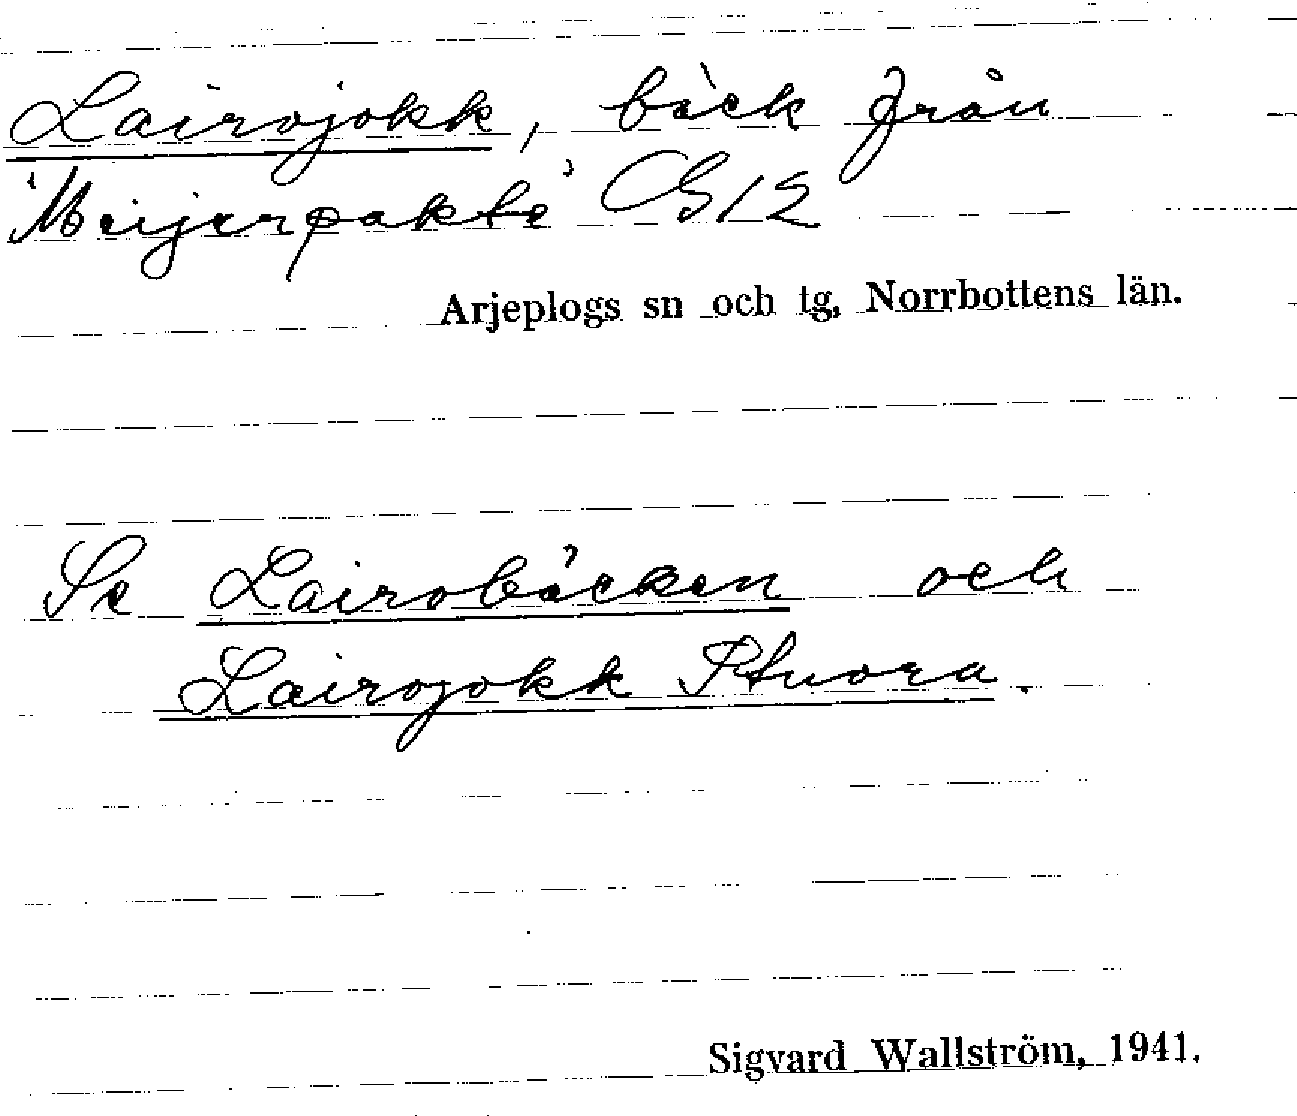 Lairojokk, bäck från
Meijerpakte G12
Arjeplogs sn och tg, Norrbottens län.
Se Lairobäcken och
Lairojokk Stuora.
Sigvard Wallström, 1941.